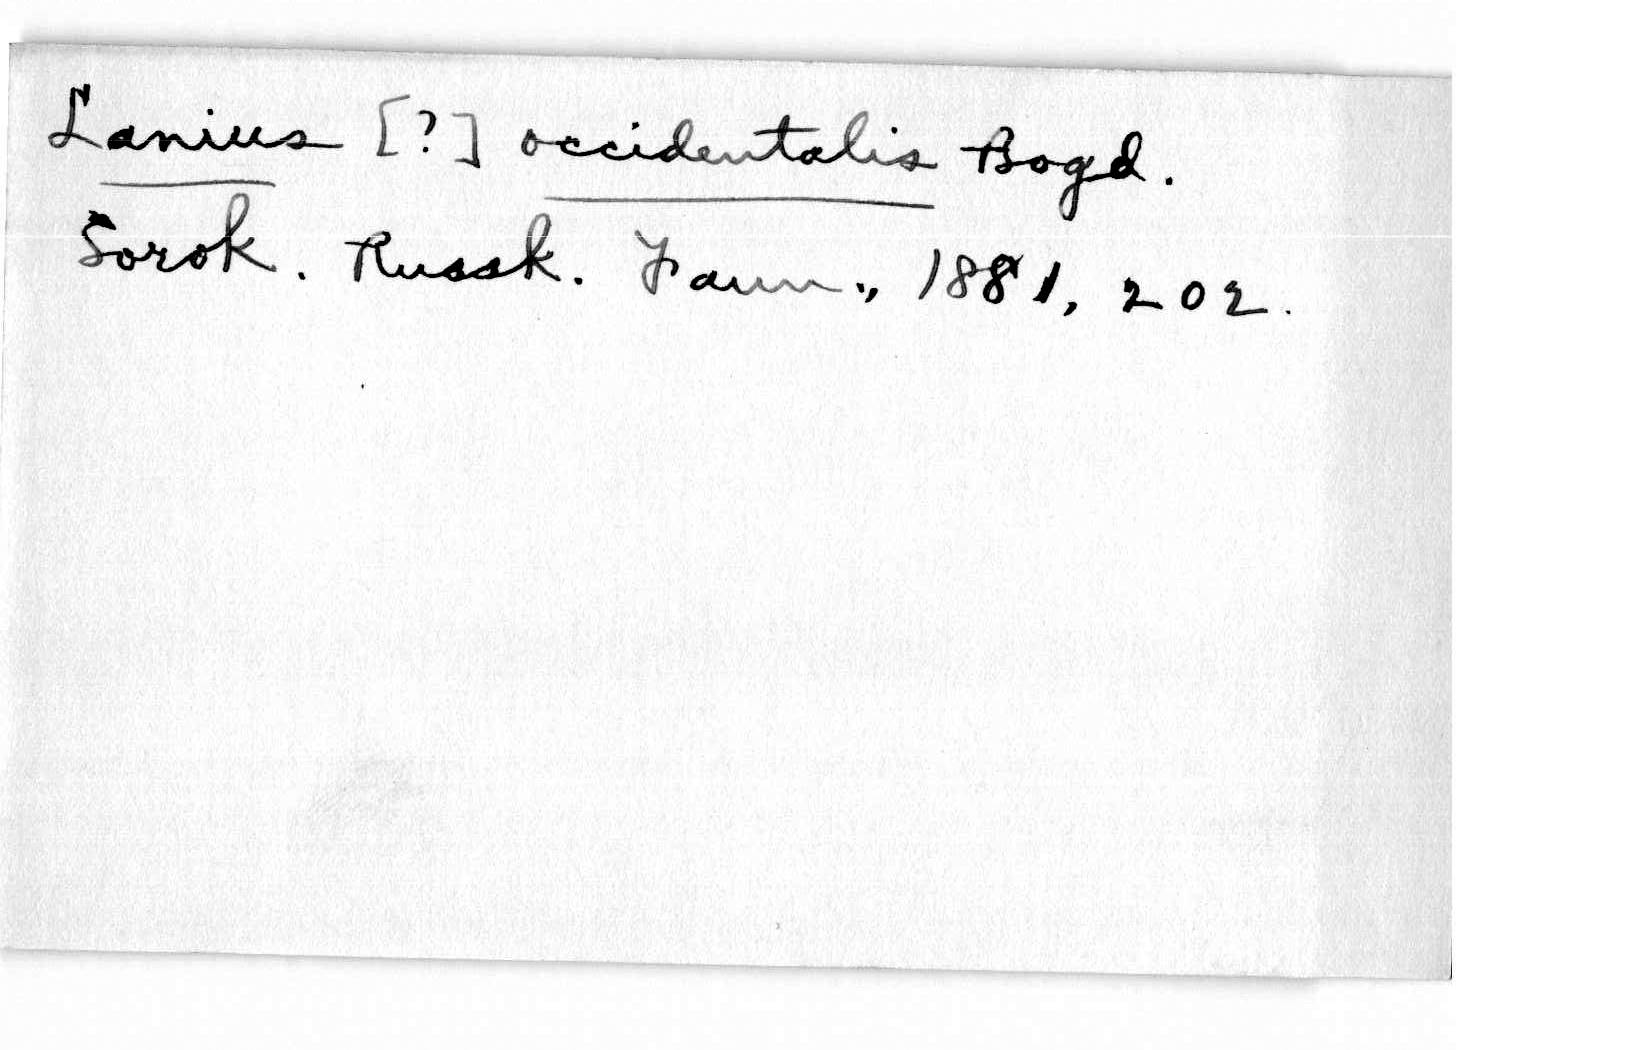 Lanius [?] occidentalis Bogd.
Sorok. Russk. Faun., 1881, 202.